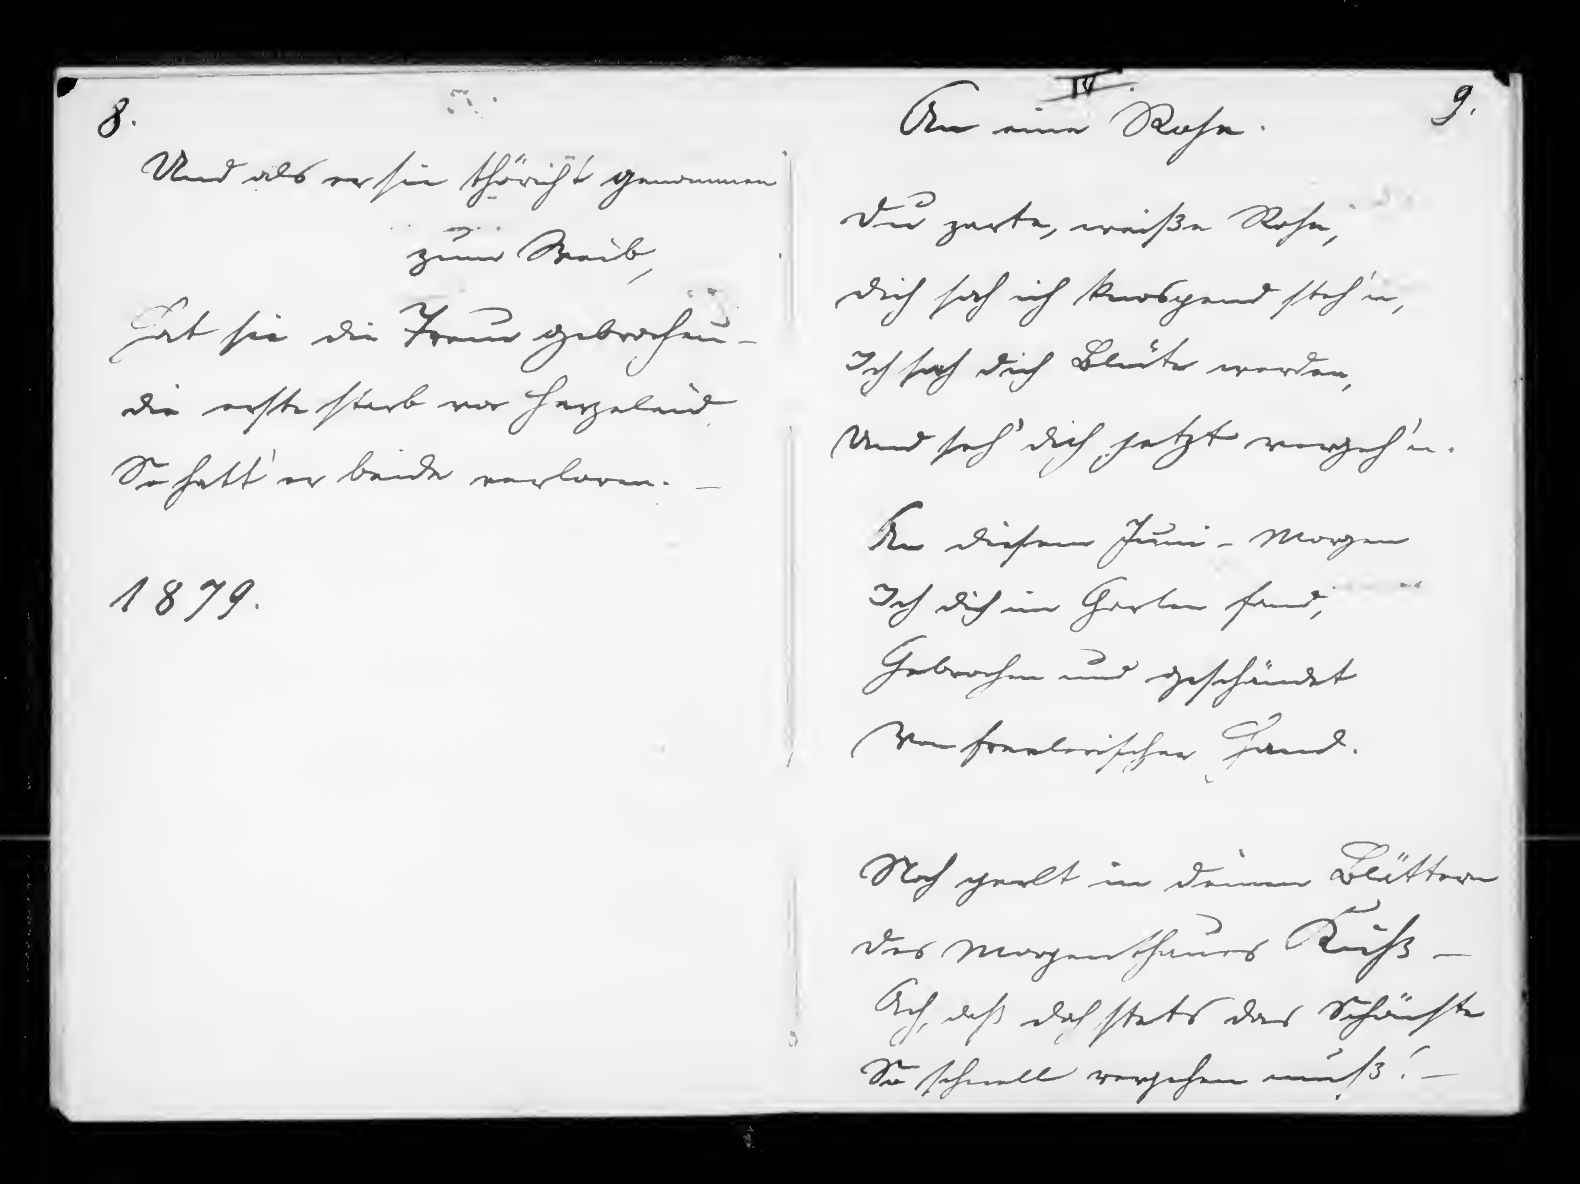 8.
Und als er sie thöricht genommen
zum Weib,
Hat sie die Treue gebrochen –
die erste starb vor Herzeleid
So hatt' er beide verloren. –
1879.
IV.
9.
An eine Rose.
Du zarte, weiße Rose,
dich sah ich knospend steh'n,
Ich sah dich Blüte werden,
Und seh' dich jetzt vergeh'n.
An diesem Juni-Morgen
Ich dich im Garten fand,
Gebrochen und geschändet
Von frevlerischer Hand.
Noch perlt in deinen Blättern
des Morgenthaues Kuß –
Ach, daß doch stets das Schönste
So schnell vergehen muß! –